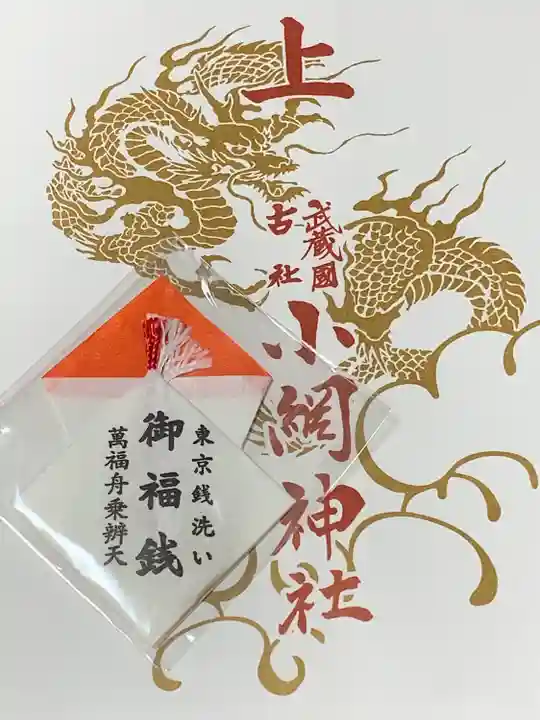 上
武蔵國
古社
小網神社
東京銭洗い
御福銭
萬福舟乗辨天